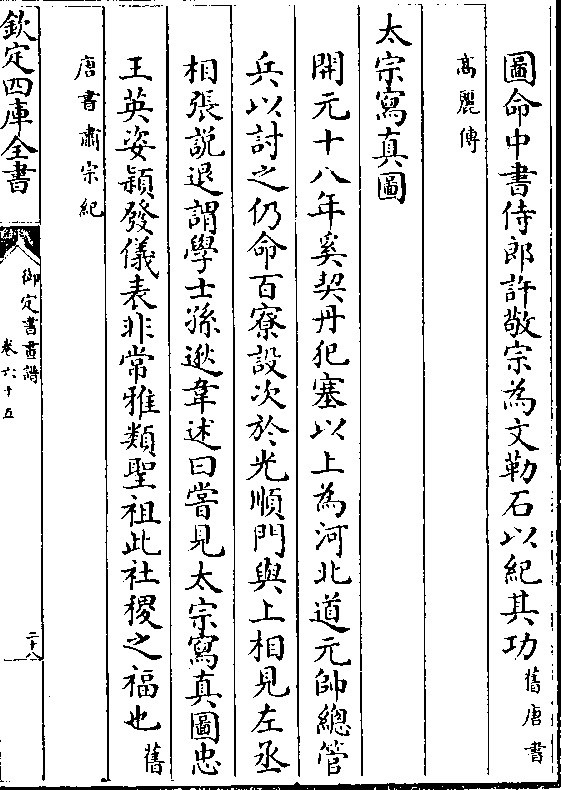 圖命中書侍郎許敬宗為文勒石以紀其功舊唐書
高麗傳
太宗寫真圖
開元十八年奚契丹犯塞以上為河北道元帥總管
兵以討之仍命百寮設次於光順門與上相見左丞
相張説退謂學士孫逖韋述曰嘗見太宗寫真圖忠
王英姿頴發儀表非常雅類聖祖此社稷之福也舊
唐書肅宗紀
欽定四庫全書
御定書畫譜
卷六十五
二十八